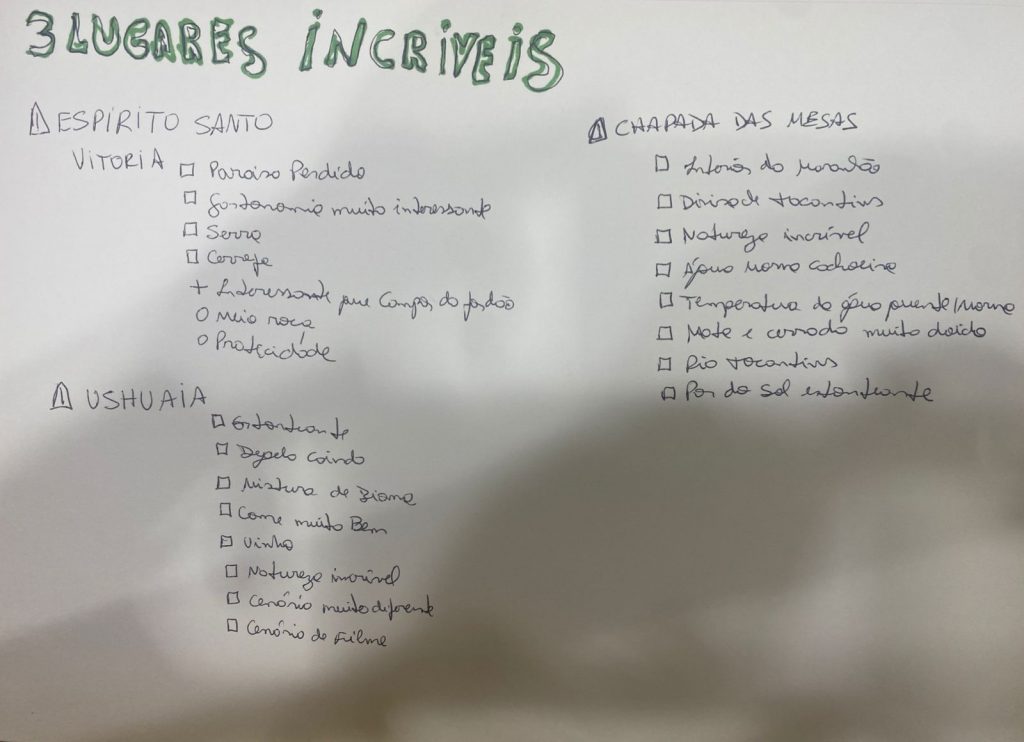 3 LUGARES INCRIVEIS
ESPÍRITO SANTO
VITORIA
Paraiso Perdido
Gastonomia muito interessante
Serra
Cerveja
+ Interessante que Campos do Jordão
Meio roça
Praticidade
USHUAIA
Estonteante
Degelo caindo
Mistura de Bioma
Come muito Bem
Vinho
Natureza incrível
Cenário muito diferente
Cenário de Filme
CHAPADA DAS MESAS
Interior do Maranhão
Divisa de tocantins
Natureza incrível
Água morna cachoeira
Temperatura da água quente/morna
Mata e cerrado muito doido
Rio tocantins
Por do Sol estonteante